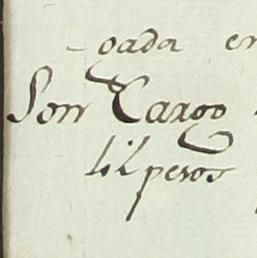 oada en
Son Cargo
lil pesos